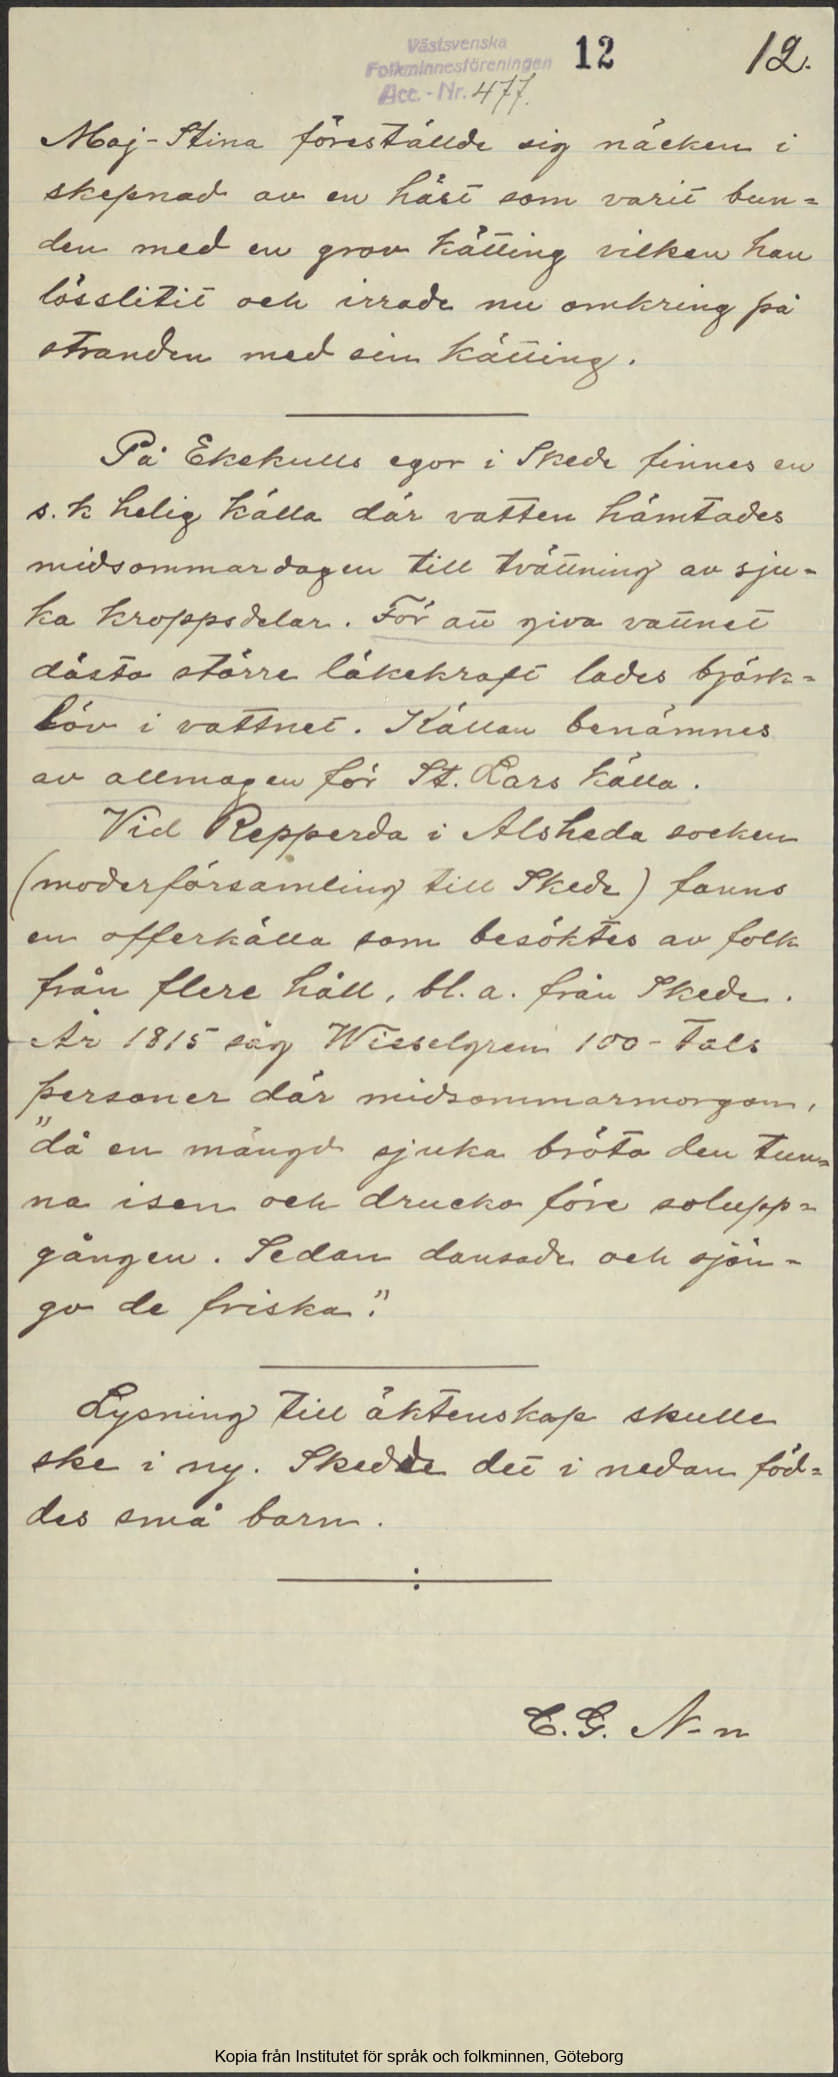 Västsvenska
Folkminnesföreningen
Acc.-Nr. 477.
12
12.
Maj-Stina föreställde sig näcken i
skepnad av en häst som varit bun=
den med en grov kätting vilken han
lösslitit och irrade nu omkring på
stranden med sin kätting.
På Ekekulls egor i Skede finnes en
s.k helig källa där vatten hämtades
midsommardagen till tvättning av sju-
ka kroppsdelar. För att giva vattnet
dästo större läkekraft lades björk=
löv i vattnet. Källan benämnes
av allmogen för St. Lars källa.
Vid Repperda i Alsheda socken
(moderförsamling till Skede) fanns
en offerkälla som besöktes av folk
från flere håll, bl. a. från Skede.
År 1815 såg Wieselgren 100-tals
personer där midsommarmorgon,
"då en mängd sjuka bröto den tun=
na isen och drucko före solupp=
gången. Sedan dansade och sjön-
go de friska."
Lysning till äktenskap skulle
ske i ny. Skedde det i nedan föd=
des små barn.
E. G. N-n
Kopia från Institutet för språk och folkminnen, Göteborg